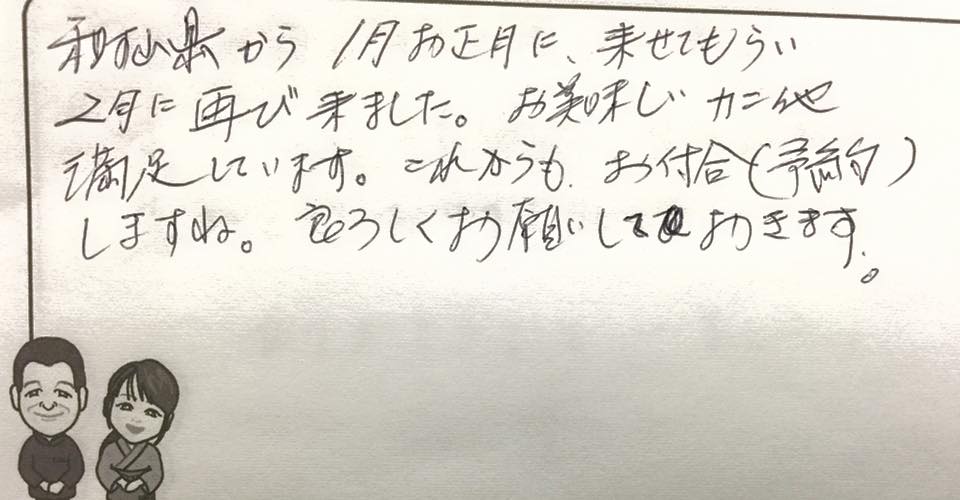 和歌山県から 1月お正月に、来せてもらい
2月に再び来ました。お美味しいカニ他
満足しています。これからも、お付合(予約)
しますね。宜ろしくお願いしておきます。